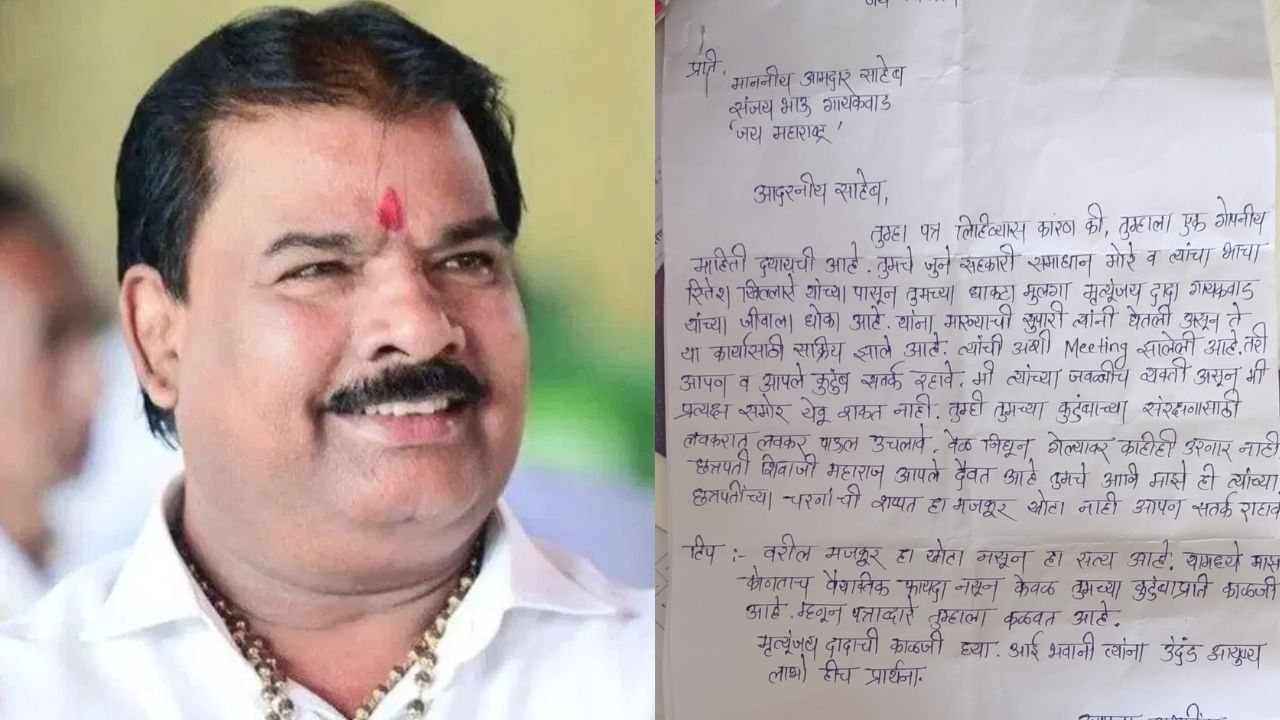 प्रति,
माननीय आमदार साहेब
संजय भाऊ गायकवाड
'जय महाराष्ट्र'
आदरनीय साहेब,
तुम्हा पत्र लिहीण्यास कारण की, तुम्हाला एक गोपनीय
माहिती दयायची आहे. तुमचे जुने सहकारी समाधान मोरे व त्यांचा भाचा
रितेश खिल्लारे यांच्या पासून तुमच्या धाकटा मुलगा मृत्यूंजय दादा गायकवाड
यांच्या जीवाला धोका आहे. यांना मारण्याची सुपारी त्यांनी घेतली असून ते
या कार्यासाठी सक्रिय झाले आहे. त्यांची अशी Meeting झालेली आहे. तरी
आपण व आपले कुटुंब सतर्क रहावे. मी त्यांच्या जवळचीच व्यक्ती असून मी
प्रत्यक्ष समोर येवू शकत नाही. तुम्ही तुमच्या कुटुंबाच्या संरक्षणासाठी
लवकरात लवकर पाऊल उचलावे. वेळ निघून गेल्यावर काहीही उरणार नाही
छत्रपती शिवाजी महाराज आपले दैवत आहे तुमचे आणि माझे ही त्यांच्या
छत्रपतींच्या चरणांची शप्पत हा मजकूर खोटा नाही आपण सतर्क राहाव
टिप :- वरील मजकूर हा खोटा नसून हा सत्य आहे. यामध्ये माझ
कोणताच वैयक्तिक फायदा नसून केवळ तुमच्या कुटुंबाप्रती काळजी
आहे. म्हणून पत्राव्दारे तुम्हाला कळवत आहे.
मृत्यूंजय दादाची काळजी घ्या. आई भवानी त्यांना उदंड आयुष्य
लाभो हीच प्रार्थना.